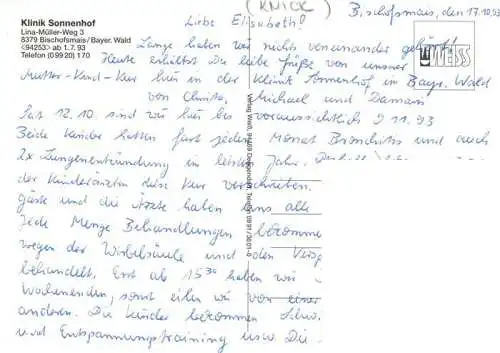 Klinik Sonnenhof
Lina-Müller-Weg 3
8379 Bischofsmais/Bayer. Wald
<94253> ab 1.7.93
Telefon (09920) 170
(KNICK)
Bischofsmais, den 17.10.93
WEISS
Liebe Elisabeth!
Lange haben wir nichts voneinander gehört!
Heute erhältst Du liebe Grüße von unserer
Mutter-Kind-Kur hier in der Klinik Sonnenhof in Bayr. Wald
von Christa, Michael und Damian
12.10 sind wir hier bis voraussichtlich 9.11.93
Beide Kinder hatten fast jeden Monat Bronchitis und auch
2x Lungenentzündung im letzten Jahr.
der Kinderärztin diese Kur verschrieben.
und die Ärzte haben uns alle
Jede Menge Behandlungen bekommen
wegen der Wirbelsäule und den
behandelt. Erst ab 15³⁰ haben wir
Wochenenden, sonst eilen wir von einer
anderen. Die Kinder bekommen
und Entspannungstraining usw. Die